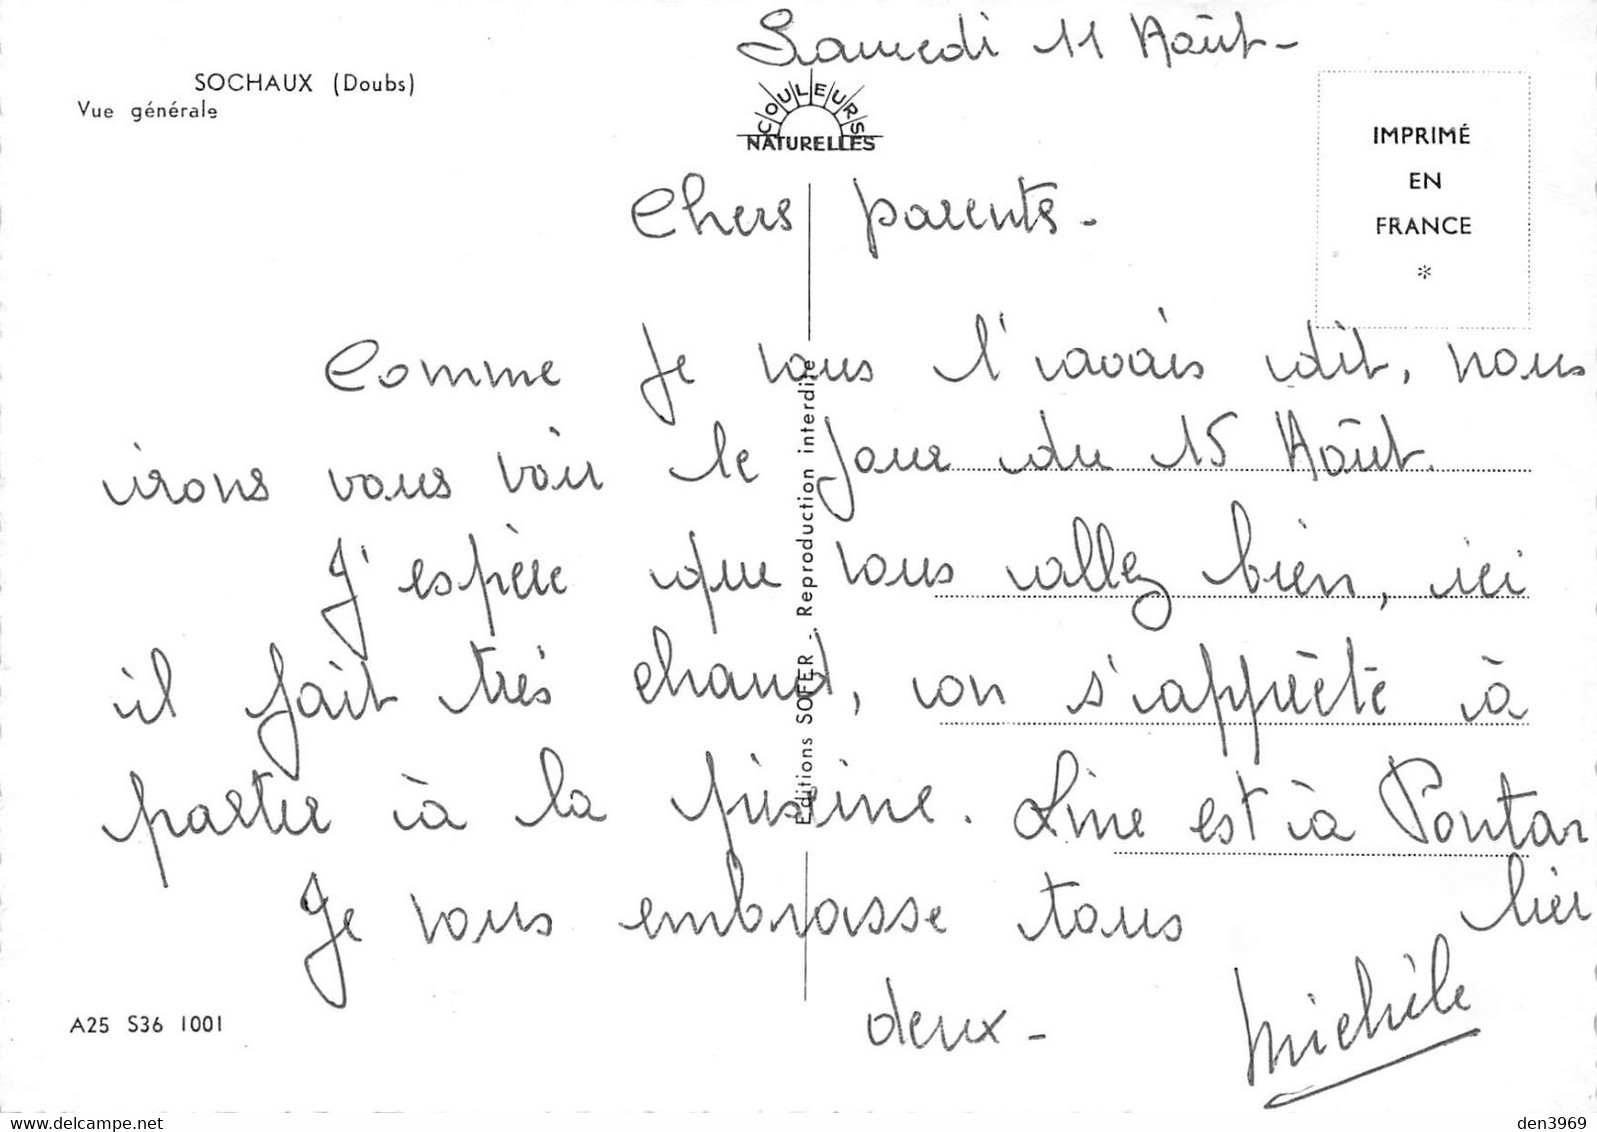 Samedi 11 Août -
SOCHAUX (Doubs)
Vue générale
COULEURS
NATURELLES
IMPRIMÉ
EN
FRANCE
*
Chers parents -
Comme je vous l'avais dit, nous
irons vous voir le jour du 15 Août.
J'espère que vous allez bien, ici
il fait très chaud, on s'apprête à
partir à la piscine. Line est à Pontar
lier
Je vous embrasse tous
deux -
Michèle
Editions SOFER - Reproduction interdite
A25 S36 1001
den3969